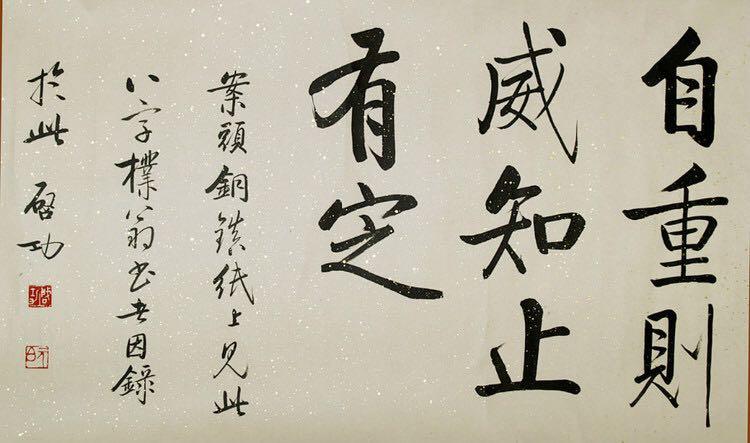 自重則
威知止
有定
案頭銅鎮紙上見此
八字樸翁書者因錄
於此 啓功
啓功
元白